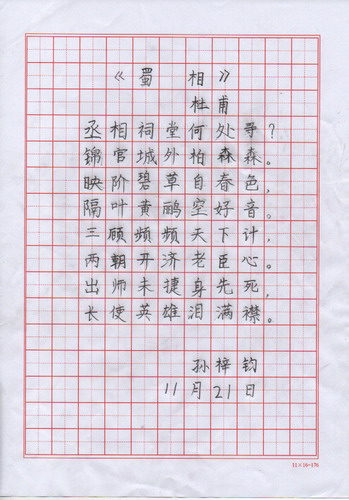 《蜀相》
杜甫
丞相祠堂何处寻?
锦官城外柏森森。
映阶碧草自春色,
隔叶黄鹂空好音。
三顾频频天下计,
两朝开济老臣心。
出师未捷身先死,
长使英雄泪满襟。
孙梓钧
11月21日
11×16=176